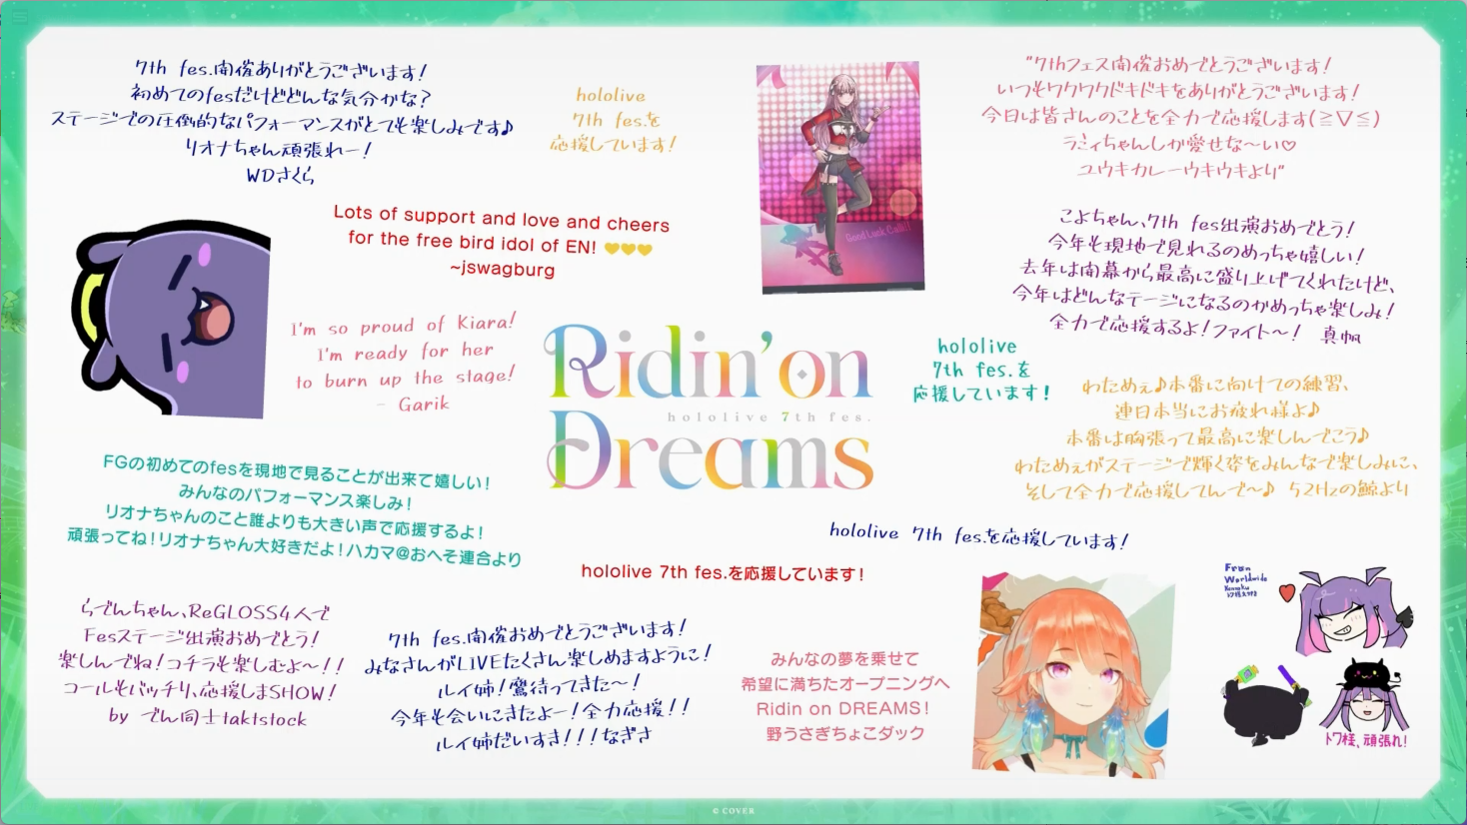 7th fes.開催ありがとうございます!
初めてのfesだけどどんな気分かな?
ステージでの圧倒的なパフォーマンスがとても楽しみです♪
リオナちゃん頑張れー!
WDさくら
hololive
7th fes.を
応援しています!
Good Luck, Calli!!
"7thフェス開催おめでとうございます!
いつもワクワクドキドキをありがとうございます!
今日は皆さんのことを全力で応援します(≧▽≦)
ラミィちゃんしか愛せな〜い♡
ユウキカレーウキウキより"
Lots of support and love and cheers
for the free bird idol of EN! 💛💛💛
~jswagburg
こよちゃん、7th fes出演おめでとう!
今年も現地で見れるのめっちゃ嬉しい!
去年は開幕から最高に盛り上げてくれたけど、
今年はどんなテージになるのかめっちゃ楽しみ!
全力で応援するよ!ファイト〜! 真帆
I'm so proud of Kiara!
I'm ready for her
to burn up the stage!
- Garik
Ridin' on
hololive 7th fes.
Dreams
hololive
7th fes.を
応援しています!
わためぇ♪本番に向けての練習、
連日本当にお疲れ様よ♪
本番は胸張って最高に楽しんでこう♪
わためぇがステージで輝く姿をみんなで楽しみに、
そして全力で応援してんで〜♪ 52Hzの鯨より
FGの初めてのfesを現地で見ることが出来て嬉しい!
みんなのパフォーマンス楽しみ!
リオナちゃんのこと誰よりも大きい声で応援するよ!
頑張ってね!リオナちゃん大好きだよ!ハカマ@おへそ連合より
hololive 7th fes.を応援しています!
hololive 7th fes.を応援しています!
らでんちゃん、ReGLOSS4人で
Fesステージ出演おめでとう!
楽しんでね!コチラも楽しむよ〜!!
コールもバッチリ、応援しまSHOW!
by でん同士taktstock
7th fes.開催おめでとうございます!
みなさんがLIVEたくさん楽しめますように!
ルイ姉!鷹待ってきた〜!
今年も会いにきたよー!全力応援!!
ルイ姉だいすき!!!なぎさ
みんなの夢を乗せて
希望に満ちたオープニングへ
Ridin on DREAMS!
野うさぎちょこダック
From
Worldwide
トワ様、頑張れ!
© COVER